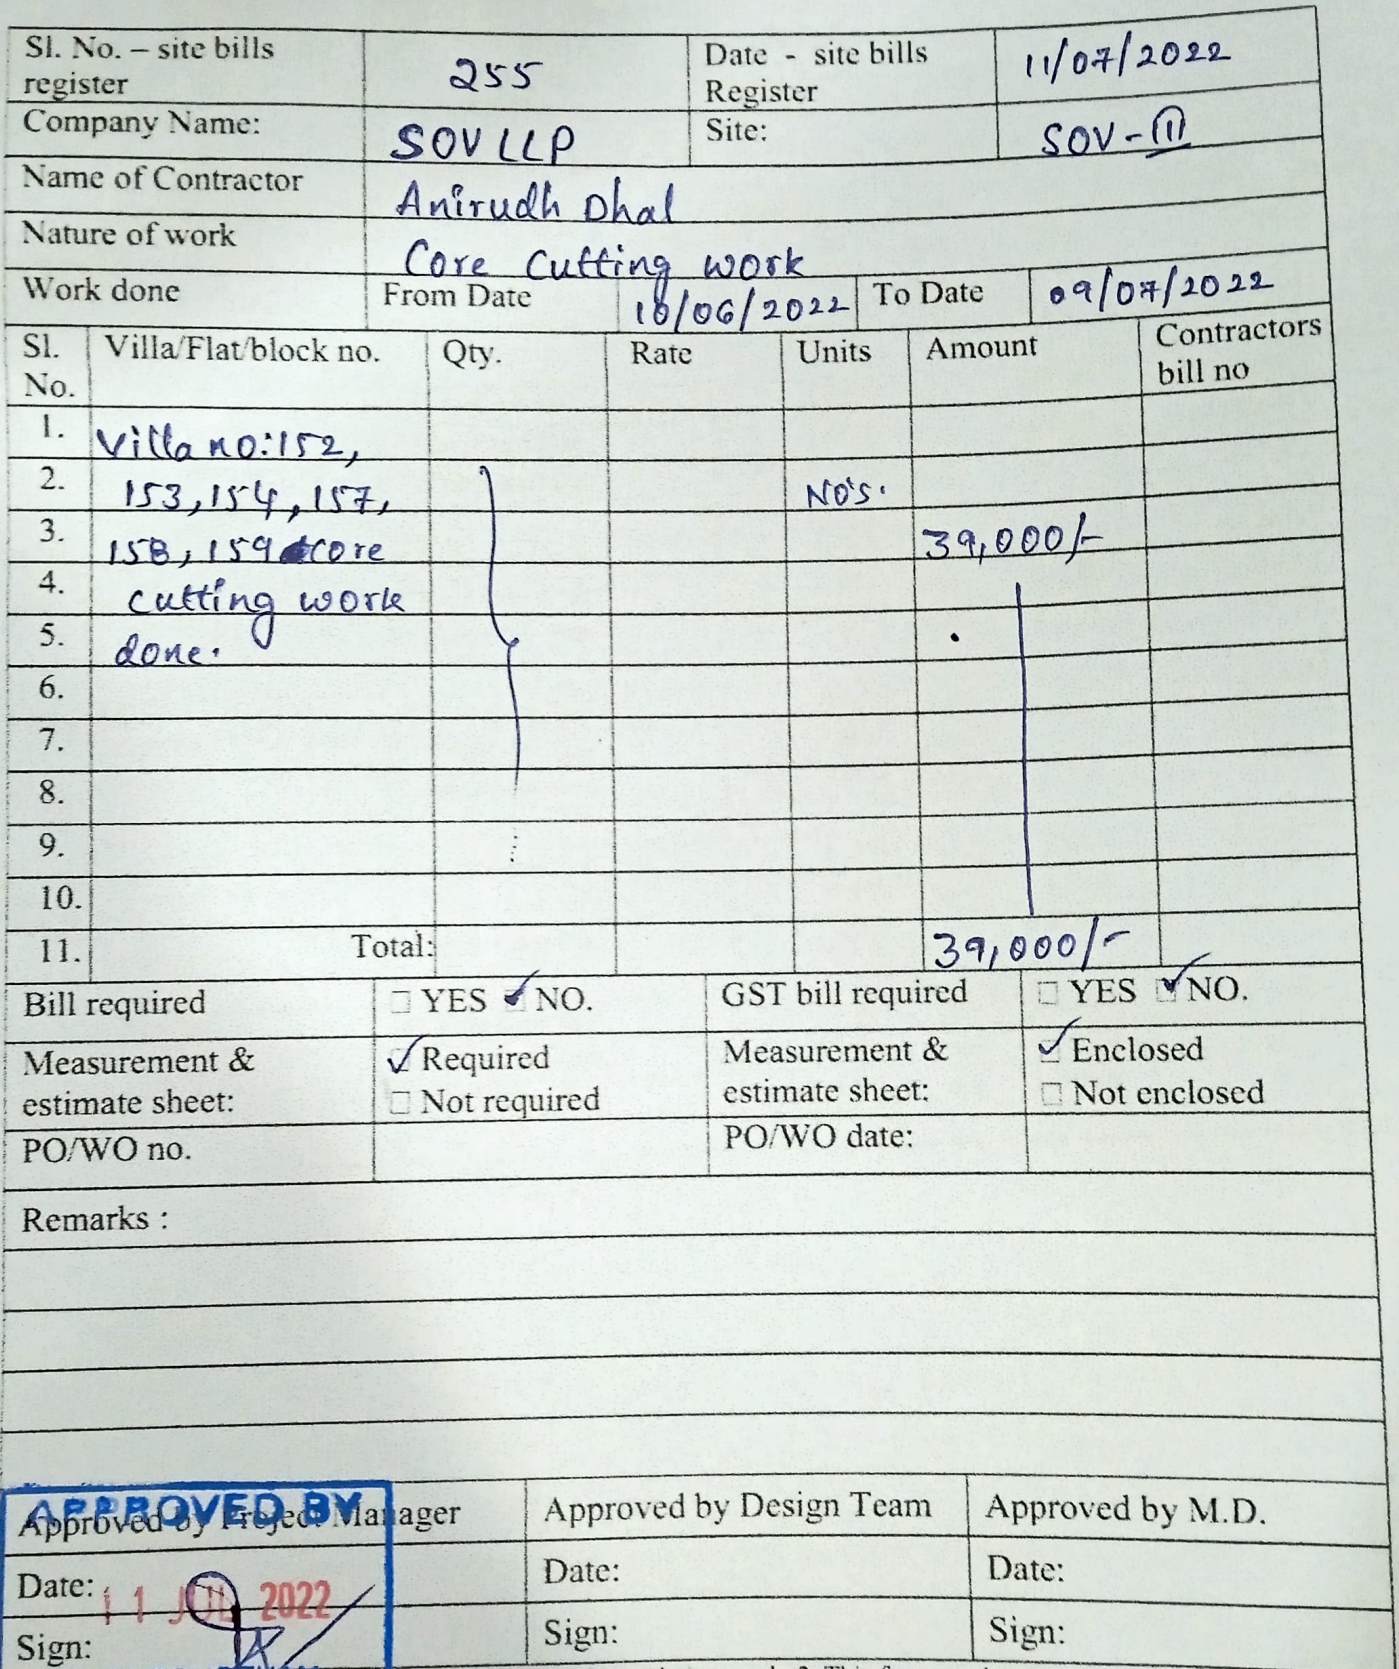 Sl. No. – site bills register 255 Date - site bills Register 11/07/2022
Company Name: SOV LLP Site: SOV-III
Name of Contractor Anirudh Dhal
Nature of work Core Cutting work
Work done From Date /06/2022 To Date 09/07/2022
Sl. No. Villa/Flat/block no. Qty. Rate Units Amount Contractors bill no
1. Villa no:152,
2. 153,154,157, NO's.
3. 158,159 core 39,000/-
4. cutting work
5. done.
6.
7.
8.
9.
10.
11. Total: 39,000/-
Bill required □ YES ✓ NO. GST bill required □ YES ✓ NO.
Measurement & estimate sheet: ✓ Required □ Not required Measurement & estimate sheet: ✓ Enclosed □ Not enclosed
PO/WO no. PO/WO date:
Remarks :
APPROVED BY
Approved by Project Manager Approved by Design Team Approved by M.D.
Date: 11 JUL 2022 Date: Date:
Sign: Sign: Sign: